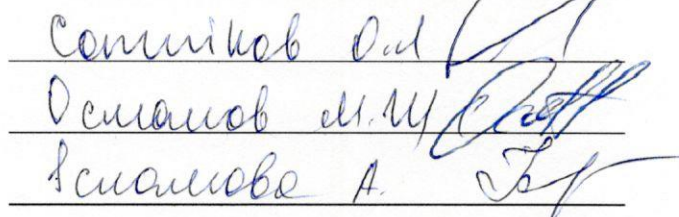 Сотников О.А
Османов М.Ш
Асманова А.